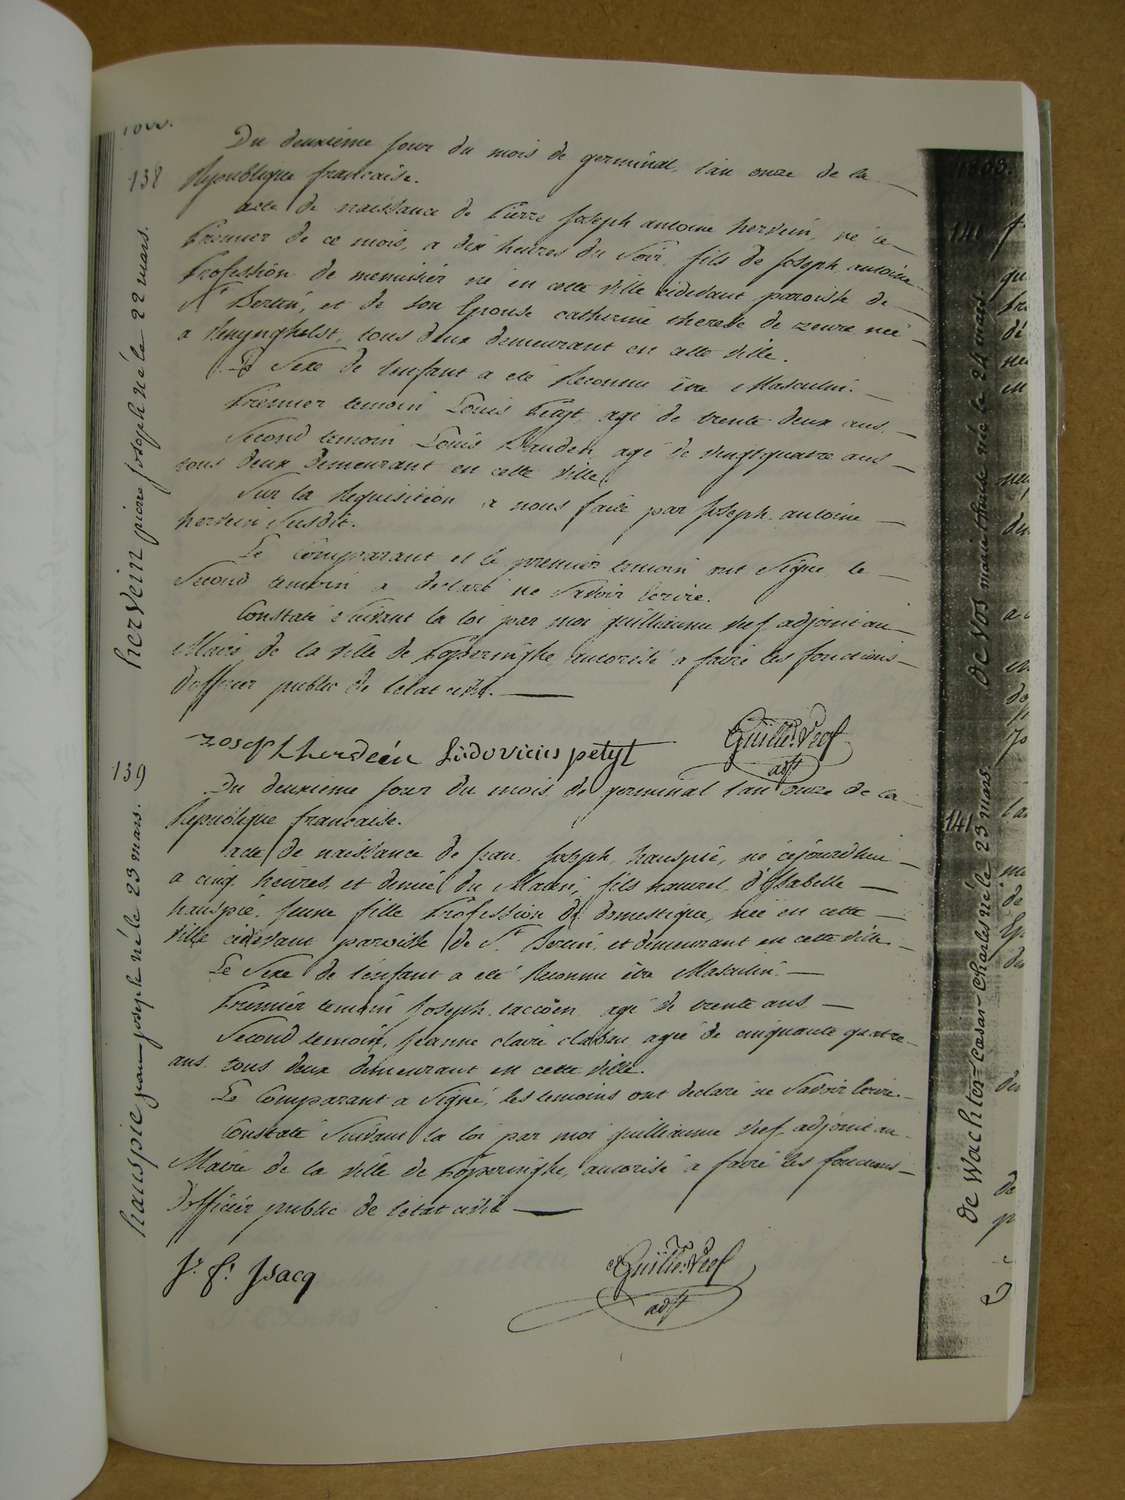 138
hervein pierre Joseph né le 22 mars.
Du deuxième Jour du mois de germinal, l'an onze de la
République française.
acte de naissance de Pierre Joseph antoine hervein, né le
Premier de ce mois, a dix heures du Soir, fils de Joseph antoine
Profession de menuisier né en cette ville cidevant paroisse de
St Bertin, et de son Epouse catherine therese de zeure née
a Renynghelst, tous deux demeurant en cette ville.
Le Sexe de l'enfant a été Reconnu être Masculin.
Premier temoin Louis Petyt agé de trente deux ans,
Second temoin Louis agé de vingtquatre ans
tous deux demeurant en cette ville
Sur la Requisition a nous faite par Joseph antoine
hervein Susdit.
Le Comparant et le premier temoin ont Signé le
Second temoin a declaré ne Savoir Ecrire.
Constaté Suivant la loi par moi guilliaume Vref adjoint au
Maire de la Ville de Poperinghe, autorisé a faire les fonctions
D'officier public de l'état civil.
Joseph herveín Ludovicus petyt Guille. Vref
adjt
139
hauspie jean joseph né le 23 mars.
Du deuxieme Jour du mois de germinal l'an onze de la
République francaise.
acte de naissance de Jean Joseph hauspié, né cejourdhui
a cinq heures et demie du Matin, fils naturel d'Isabelle
hauspié Jeune fille Profession de domestique, née en cette
Ville cidevant paroisse de St Bertin, et demeurant en cette ville.
Le Sexe de l'enfant a été Reconnu être Masculin.
Premier temoin Joseph taccoen agé de trente ans
Second temoin, Jeanne claire agée de cinquante quatre
ans tous deux demeurant en cette Ville.
Le Comparant a Signé, les temoins ont declaré ne Savoir Ecrire.
Constaté Suivant la loi par moi guilliaume Vref adjoint au
Maire de la Ville de Poperinghe, autorisé a faire les fonctions
D'officier public de l'état civil
Jr. fr. Isacq Guille. Vref
adjt
1803.
140
de Vos marie née le 24 mars.
141
de Wachter-Cæsar-Charles né le 25 mars.